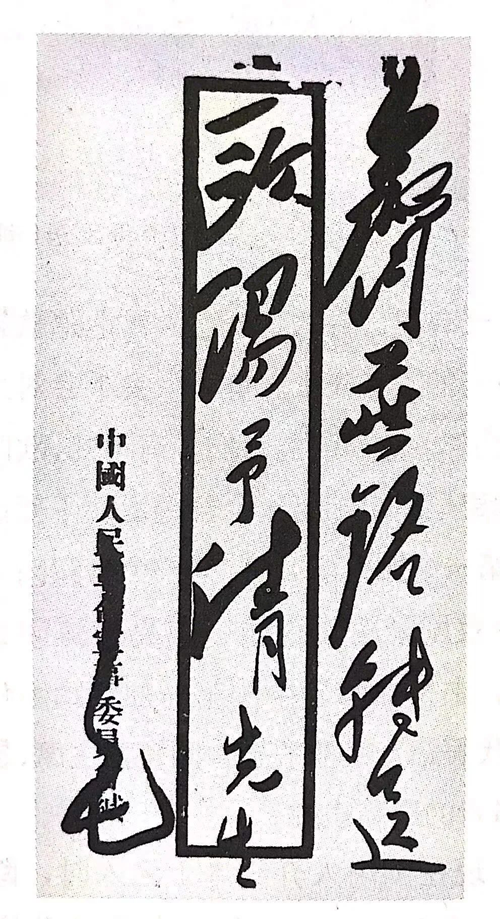 齊燕銘轉送
歐陽予倩先生
中國人民革命軍事委員會緘
毛